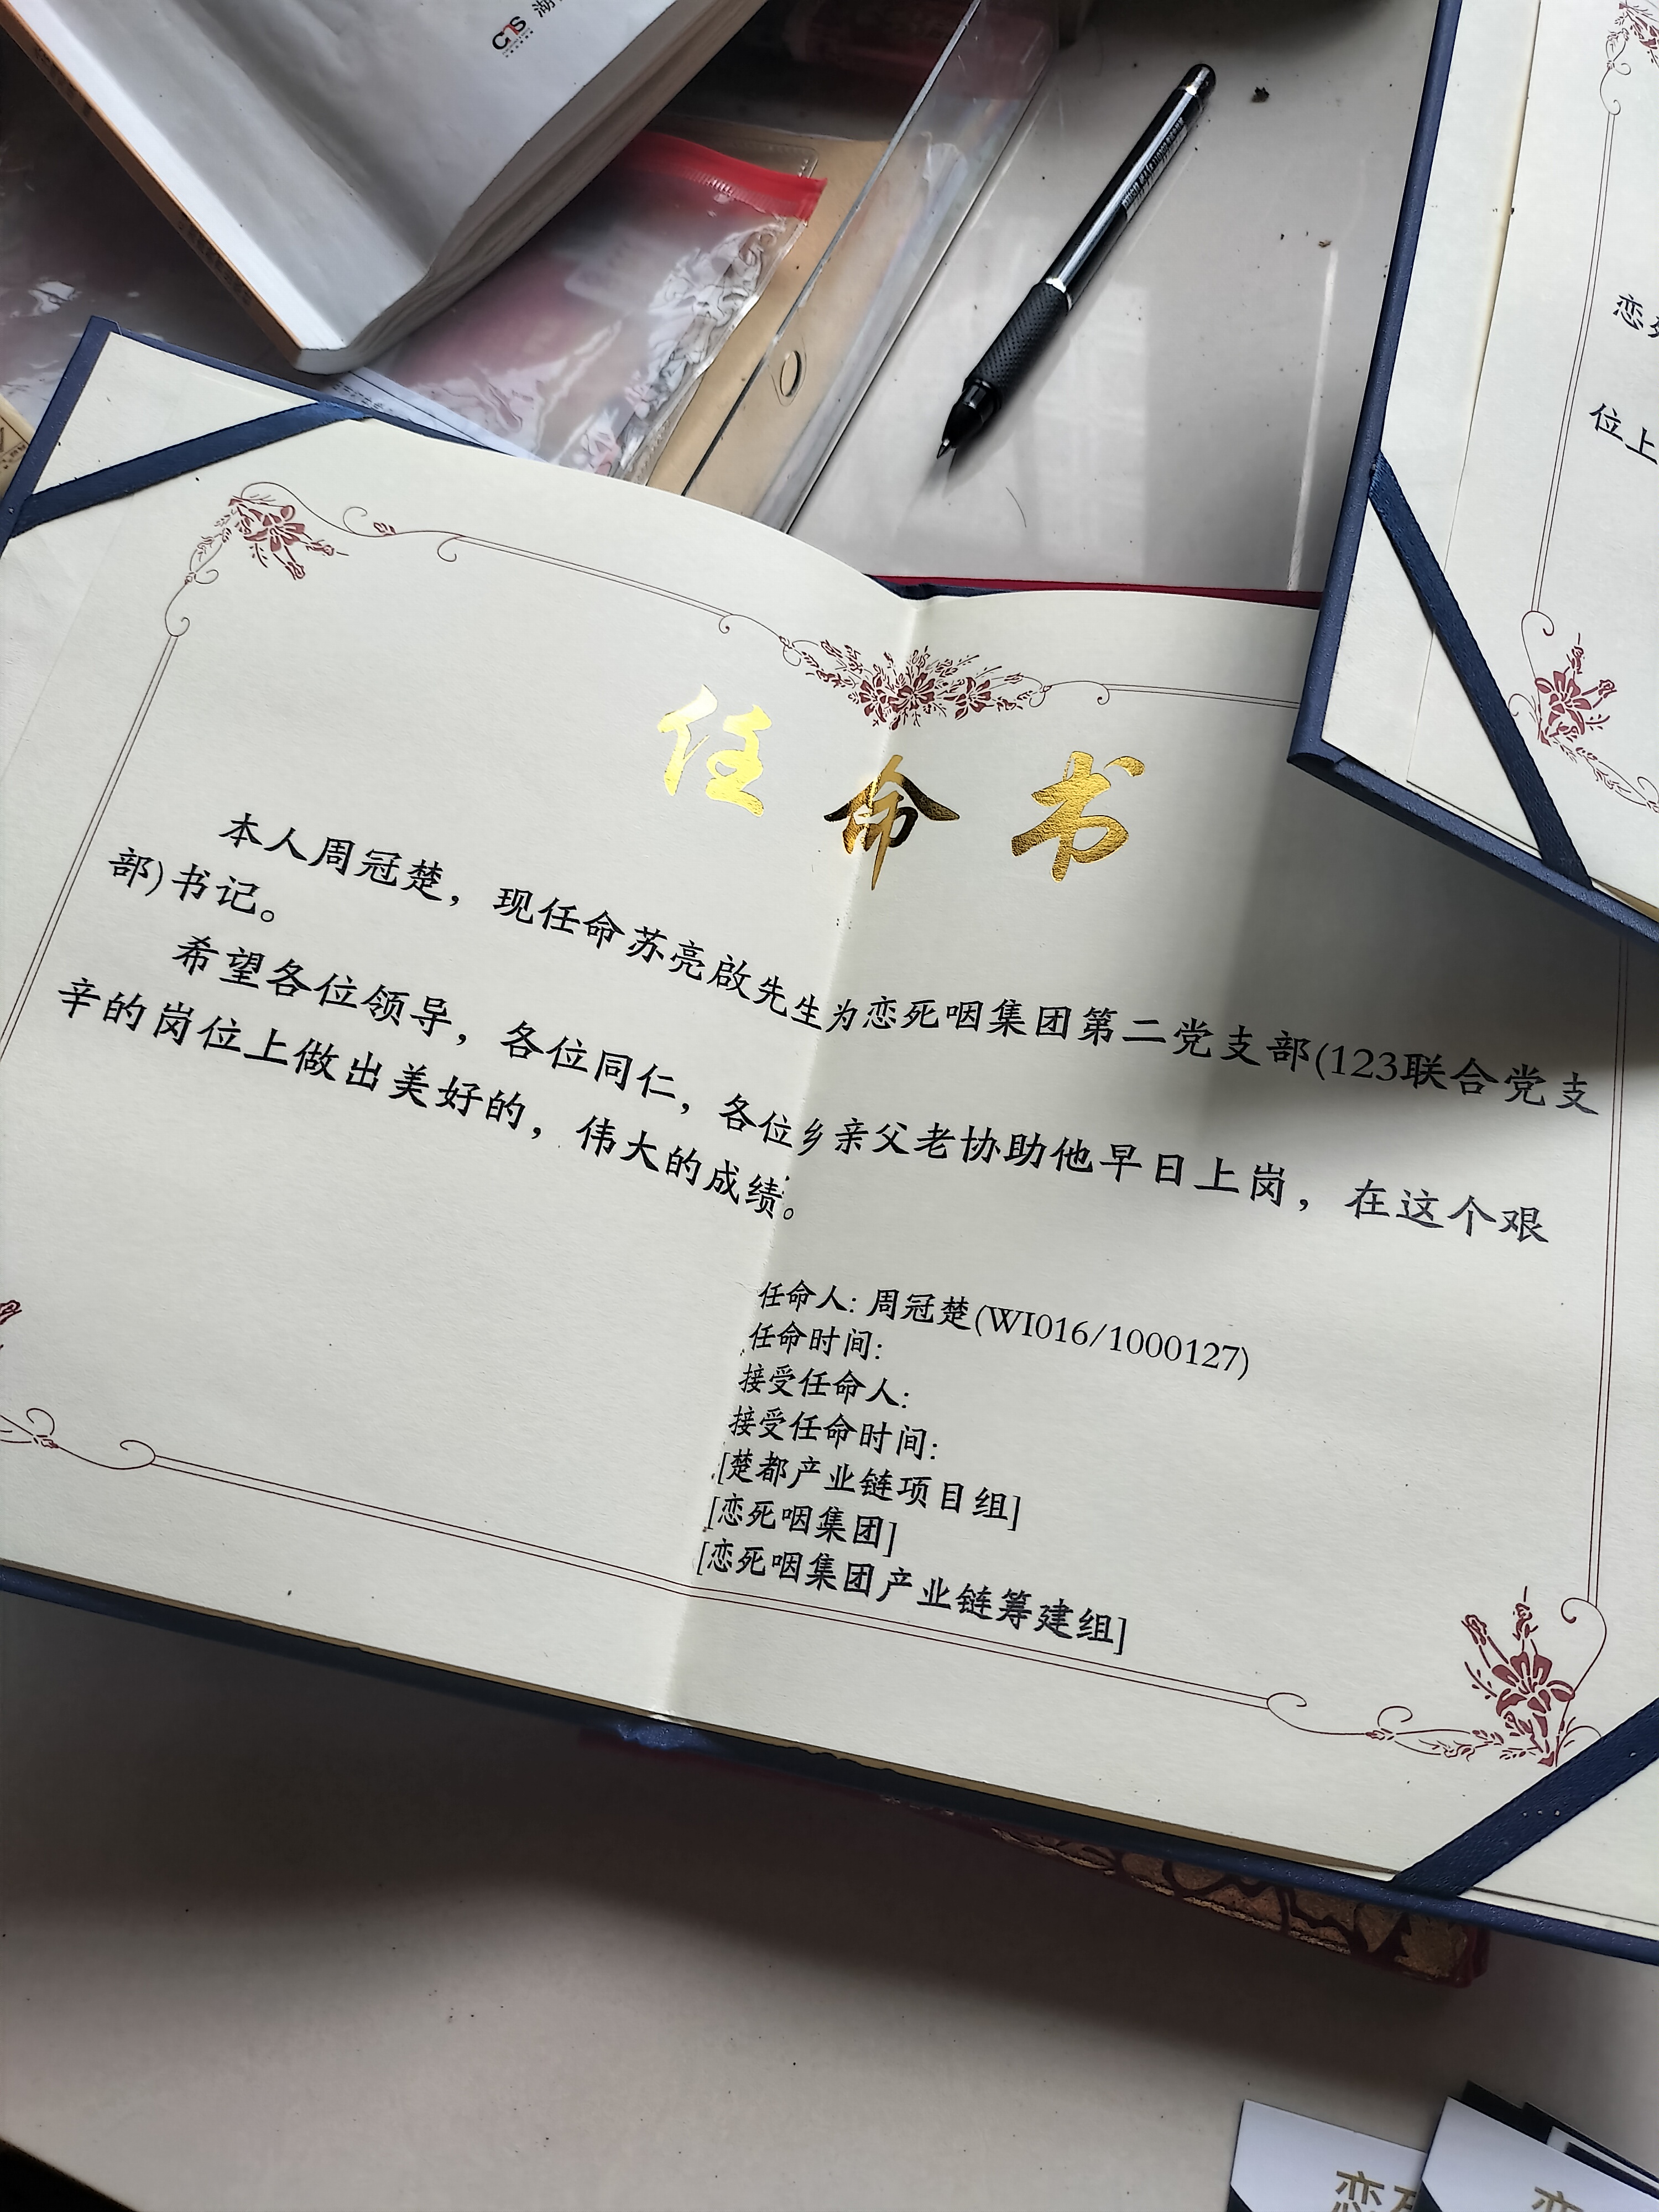 CNS 湖
任命书
本人周冠楚，现任命苏亮啟先生为恋死咽集团第二党支部(123联合党支
部)书记。
希望各位领导，各位同仁，各位乡亲父老协助他早日上岗，在这个艰
辛的岗位上做出美好的，伟大的成绩。
任命人: 周冠楚(WI016/1000127)
任命时间:
接受任命人:
接受任命时间:
[楚都产业链项目组]
[恋死咽集团]
[恋死咽集团产业链筹建组]
恋
位上
恋死
恋